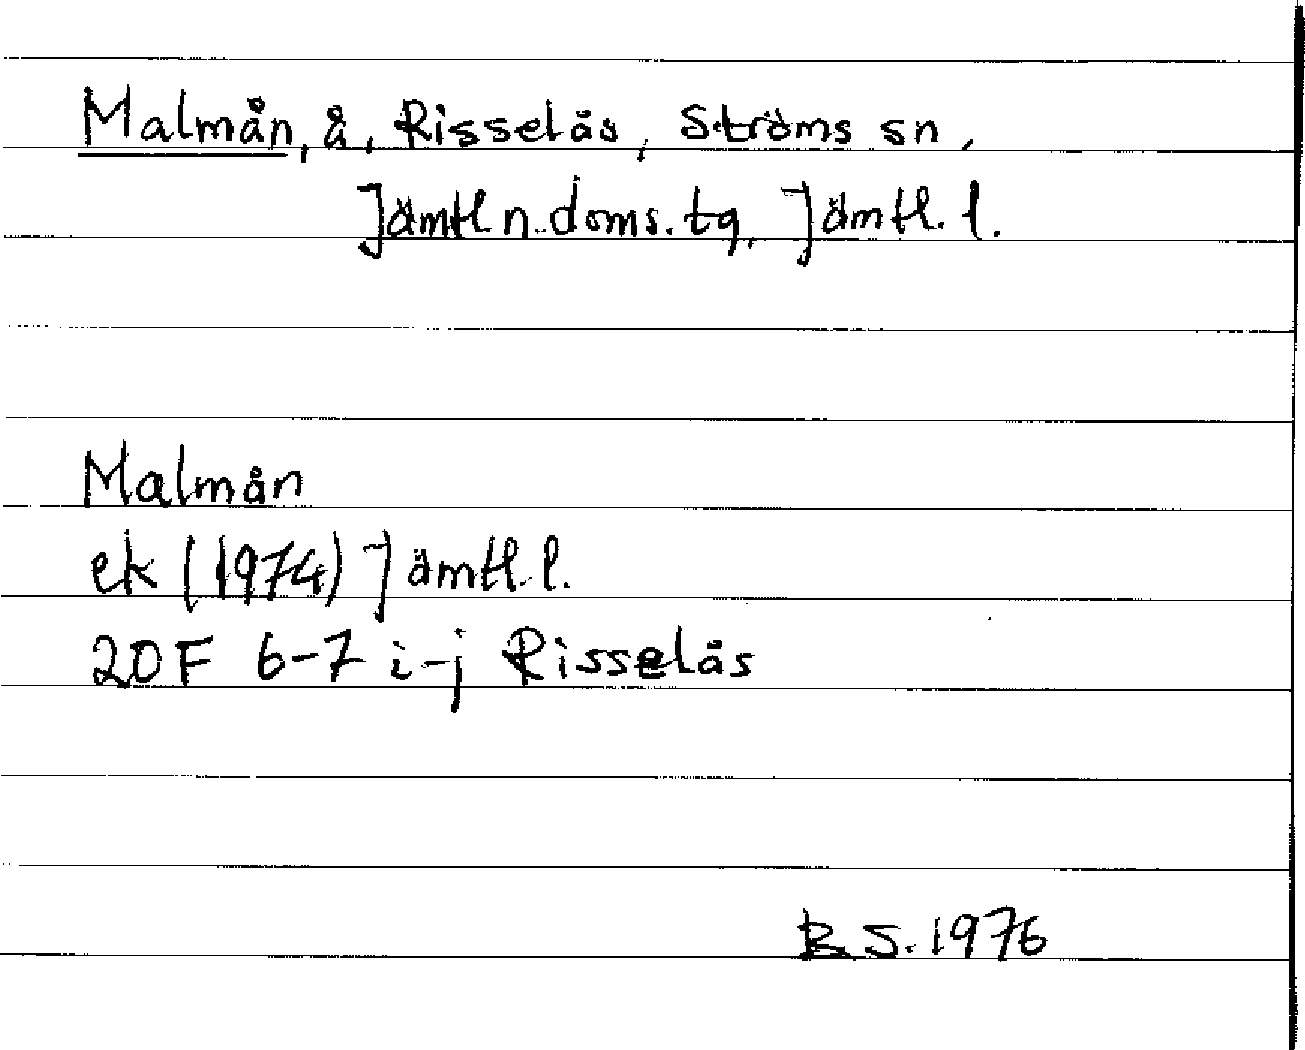 Malmån, å, Risselås, Ströms sn,
Jämtl n. doms. tg, Jämtl. l.
Malmån
ek (1974) Jämtl. l.
20F 6-7 i-j Risselås
B S. 1976